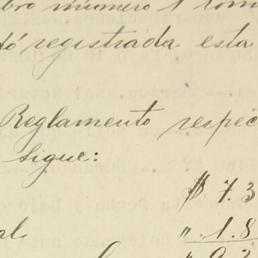 bro número 1 tom
dó registrada esta
Reglamento respec
sigue:
$ 7.3
al " 1.8